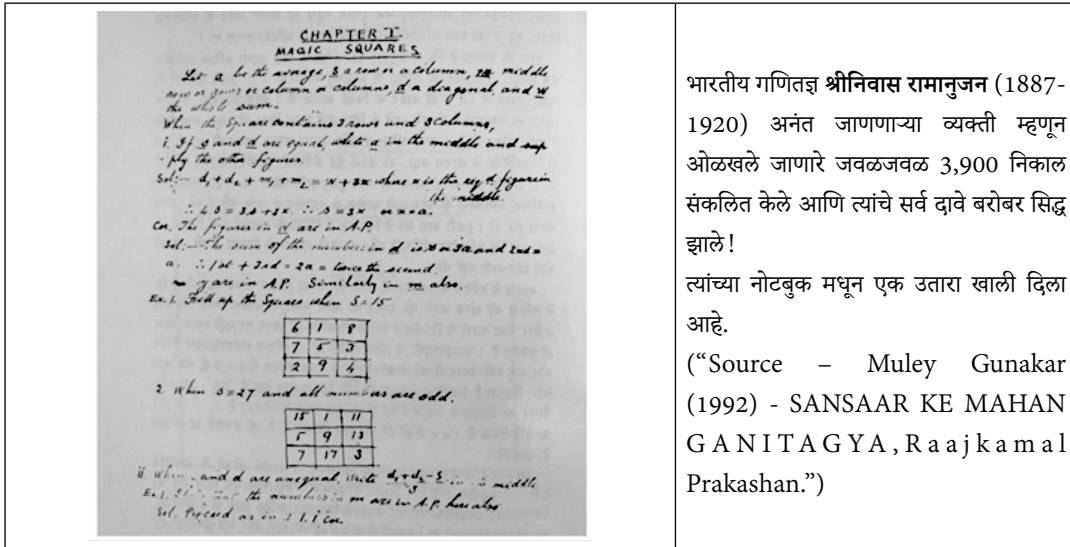 CHAPTER I.
MAGIC SQUARES
Let a be the average, S a row or a column, m middle
row or rows or column or columns, d a diagonal, and W
the whole sum.
When the Square contains 3 rows and 3 columns,
i. If S and d are equal, write a in the middle and sup
-ply the other figures.
Sol:— d₁ + d₂ + m₁ + m₂ = W + 3x where x is the figure in
the middle.
∴ 4S = 3S + 3x. ∴ S = 3x or x = a.
Cor. The figures in d are in A.P.
Sol:— The sum of the numbers in d is 3a and 2nd =
a. ∴ 1st + 3rd = 2a = twice the second.
∴ y are in A.P. Similarly in m also.
Ex. 1. Fill up the Square when S = 15
6 1 8
7 5 3
2 9 4
2. When S = 27 and all numbers are odd.
15 1 11
5 9 13
7 17 3
ii. When and d are unequal, write d₁ + d₂ - S in middle
3
Ex. 1. the numbers in m are in A.P. here also
Sol. Proceed as in 1.1 Cor.
भारतीय गणितज्ञ श्रीनिवास रामानुजन (1887-
1920) अनंत जाणणाऱ्या व्यक्ती म्हणून
ओळखले जाणारे जवळजवळ 3,900 निकाल
संकलित केले आणि त्यांचे सर्व दावे बरोबर सिद्ध
झाले!
त्यांच्या नोटबुक मधून एक उतारा खाली दिला
आहे.
(“Source – Muley Gunakar
(1992) - SANSAAR KE MAHAN
GANITAGYA, Raajkamal
Prakashan.”)